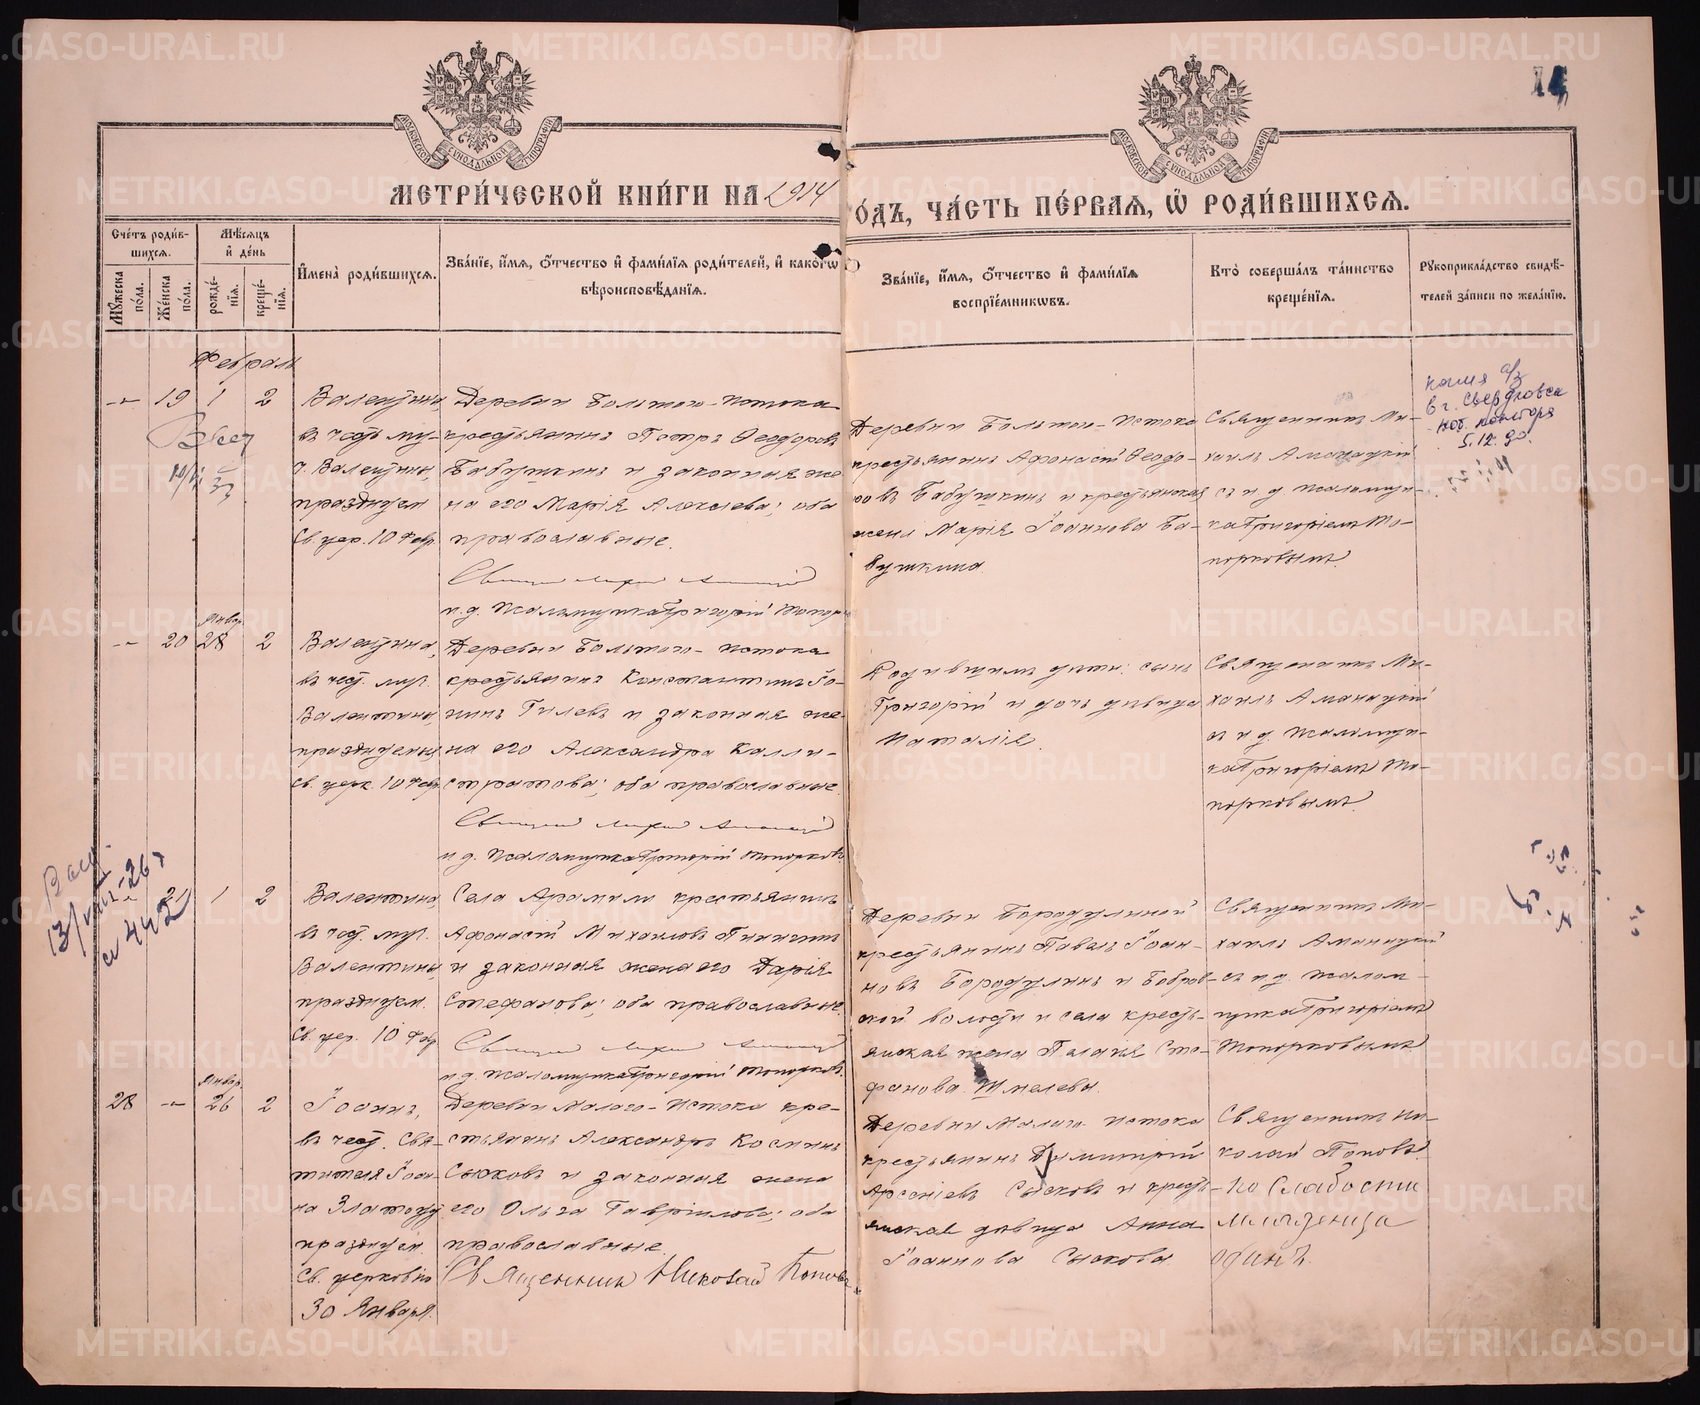 МЕТРИ́ЧЕСКОЙ КНИ́ГИ НА 1914
О́ДЪ, ЧА́СТЬ ПЕ́РВАѦ, Ѿ РОДИ́ВШИХСѦ.
Сче́тъ роди́в-
шихся.
Мѣ́сяцъ
и де́нь
Мꙋжеска по́ла.
Же́нска по́ла.
рожде́нїя.
креще́нїя.
И҆мена̀ роди́вшихся.
Зва́нїе, и҆́мя, ѻ҆́тчество и҆ фами́лїя роди́телей, и҆ како́гѡ
вѣроисповѣ́данїя.
Зва́нїе, и҆́мя, ѻ҆́тчество и҆ фами́лїя
воспрїе́мникѡвъ.
Кто̀ соверша́лъ та́инство
креще́нїя.
Рꙋкоприкла́дство свидѣ́-
телей за́писи по жела́нїю.
Февраль
19 1 2
Валентина
въ честь му-
ч. Валентины,
празднуем
Св. цер. 10 Февр.
Деревни Большого-Истока
крестьянинъ Петръ Ѳеодоровъ
Бабушкинъ и законная же
на его Марія Алексѣева; оба
православные.
и. д. псаломщика Григорій Топорк
Деревни Большого-Истока
крестьянинъ Афанасій Ѳеодо-
ровъ Бабушкинъ и крестьянская
жена Марія Іоаннова Ба-
бушкина.
Священникъ Ми-
хаилъ Аманацкій
съ и д псаломщи-
ка Григоріемъ То-
порковымъ
копия
в г. Свердловск
5.12.90.
Январ.
20 28 2
Валентина,
въ чест. муч.
Валентины,
празднуемыя
Св. церк. 10 Февр
Деревни Большого-Истока
крестьянинъ Константинъ Іо-
нинъ Гилевъ и законная же-
на его Александра Калли-
стратова; оба православные.
и д. псаломщика Григорій Топорковъ
Родившихъ дѣти: сынъ
Григорій и дочь дѣвица
Наталія.
Священникъ Ми-
хаилъ Аманацкій
съ и д. псаломщи-
ка Григоріемъ То-
порковымъ
1 2
Валентина,
въ чест. муч.
Валентины,
празднуем.
Св. цер. 10 Февр
Села Арамили крестьянинъ
Афанасій Михаиловъ
и законная жена его Дарія
Стефанова; оба православные.
и д. псаломщика Григорій Топорков.
Деревни Бородулиной
крестьянинъ Павелъ Іоан-
новъ Бородулинъ и Бобров-
ской волости и села кресть-
янская жена Пелагія Сте-
фанова Шмелева.
Священникъ Ми-
хаилъ Аманацкій
съ и д. псалом-
щика Григоріемъ
Топорковымъ
Январ.
28 26 2
Іоаннъ,
въ чест. Свя-
тителя Іоан-
на Златоуу
празднуем
Св. церковію
30 Января.
Деревни Малого-Истока кре-
стьянинъ Александръ Косминъ
Сысковъ и законная жена
его Ольга Гавріилова; оба
православные.
Священникъ Николай Поповъ
Деревни Малого Истока
крестьянинъ Димитрій
Арсеніевъ Сысковъ и кресть-
янская дѣвица Анна
Іоаннова Сыскова.
Священникъ Ни-
колай Поповъ
по слабости
младенца
одинъ.
METRIKI.GASO-URAL.RU